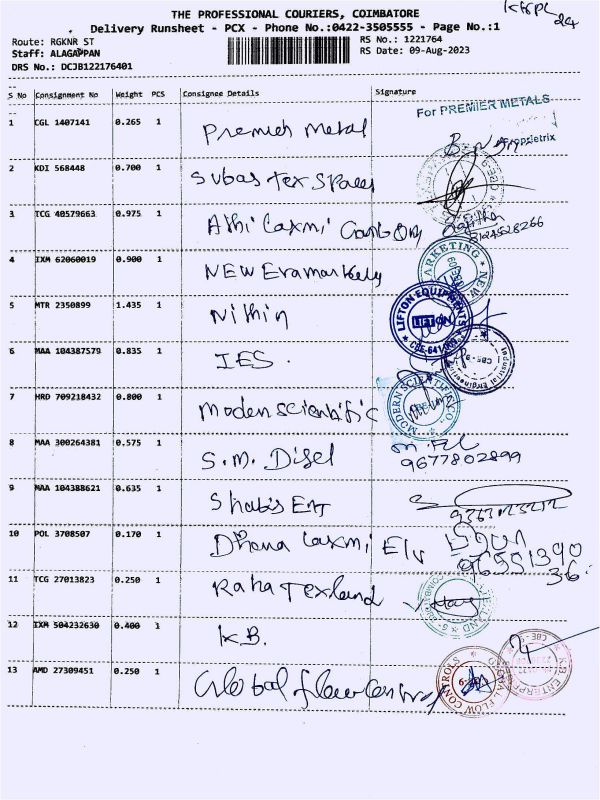 THE PROFESSIONAL COURIERS, COIMBATORE
Delivery Runsheet - PCX - Phone No.:0422-3505555 - Page No.:1
Route: RGKNR ST
RS No.: 1221764
Staff: ALAGAPPAN
RS Date: 09-Aug-2023
DRS No.: DCJB122176401
S No Consignment No Weight PCS Consignee Details Signature
For PREMIER METALS
1 CGL 1407141 0.265 1 Premier Metal
Proprietrix
2 KDI 568448 0.700 1 Subas Tex Spares
3 TCG 40579663 0.975 1 Athi Laxmi
4 IXM 62060019 0.900 1 NEW Era
MARKETING * NEW
5 MTR 2350899 1.435 1 Nithin
LIFTON EQUIPMENTS
LIFTON
6 MAA 104387579 0.835 1 IES.
Industrial Engineering
7 HRD 709218432 0.800 1 Modern Scientific
MODERN SCIENTIFIC CO
8 MAA 300264381 0.575 1 S.M. Disel
9677802899
9 MAA 104388621 0.635 1 Shabis Ent
10 POL 3708507 0.170 1 Dhana Laxmi
11 TCG 27013823 0.250 1 Raha Texland
12 IXM 504232630 0.400 1 K.B.
K.B. ENTERPRISES
13 AMD 27309451 0.250 1 Global flow Control
GLOBAL FLOW CONTROLS